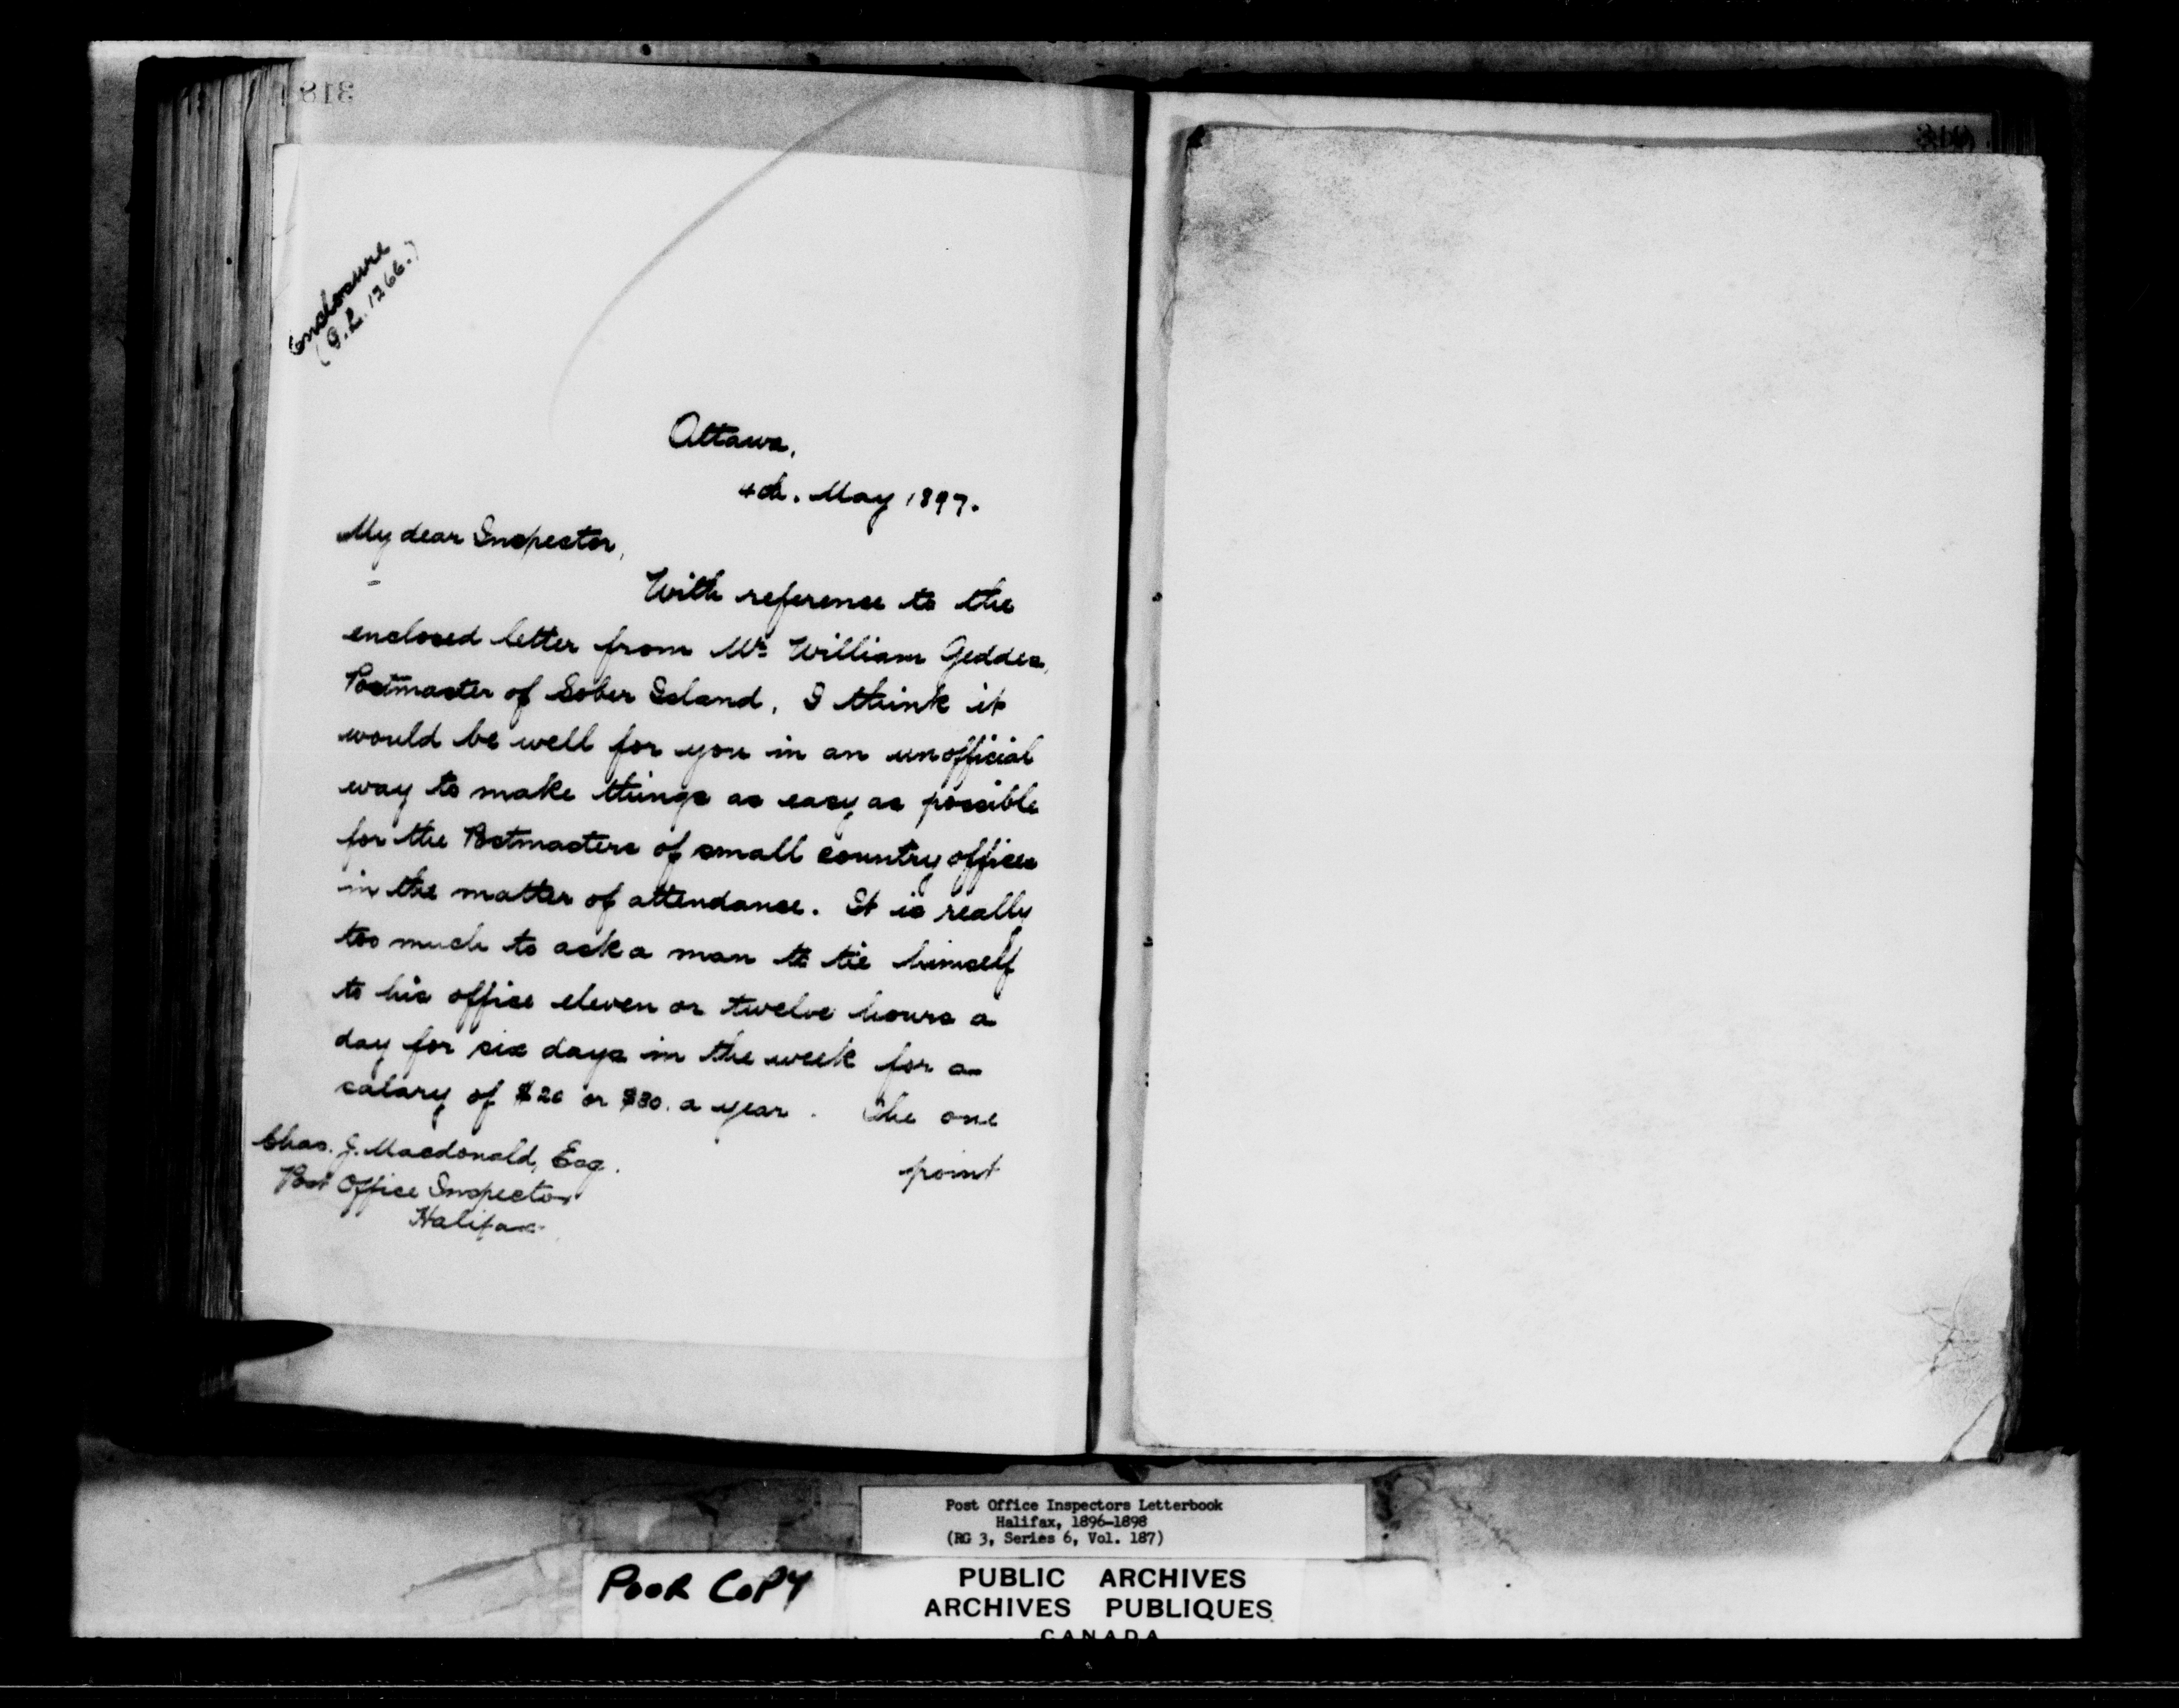 318
Enclosure
(G.L. 1266.)
Ottawa,
4th. May 1897.
My dear Inspector,
With reference to the
enclosed letter from Mr. William Geddes,
Postmaster of Sober Island, I think it
would be well for you in an unofficial
way to make things as easy as possible
for the Postmasters of small country offices
in the matter of attendance. It is really
too much to ask a man to tie himself
to his office eleven or twelve hours a
day for six days in the week for a
salary of $20 or $30. a year. The one
point
Chas. J. Macdonald, Esq.
Post Office Inspector
Halifax
Post Office Inspectors Letterbook
Halifax, 1896-1898
(RG 3, Series 6, Vol. 187)
POOR COPY
PUBLIC ARCHIVES
ARCHIVES PUBLIQUES
CANADA